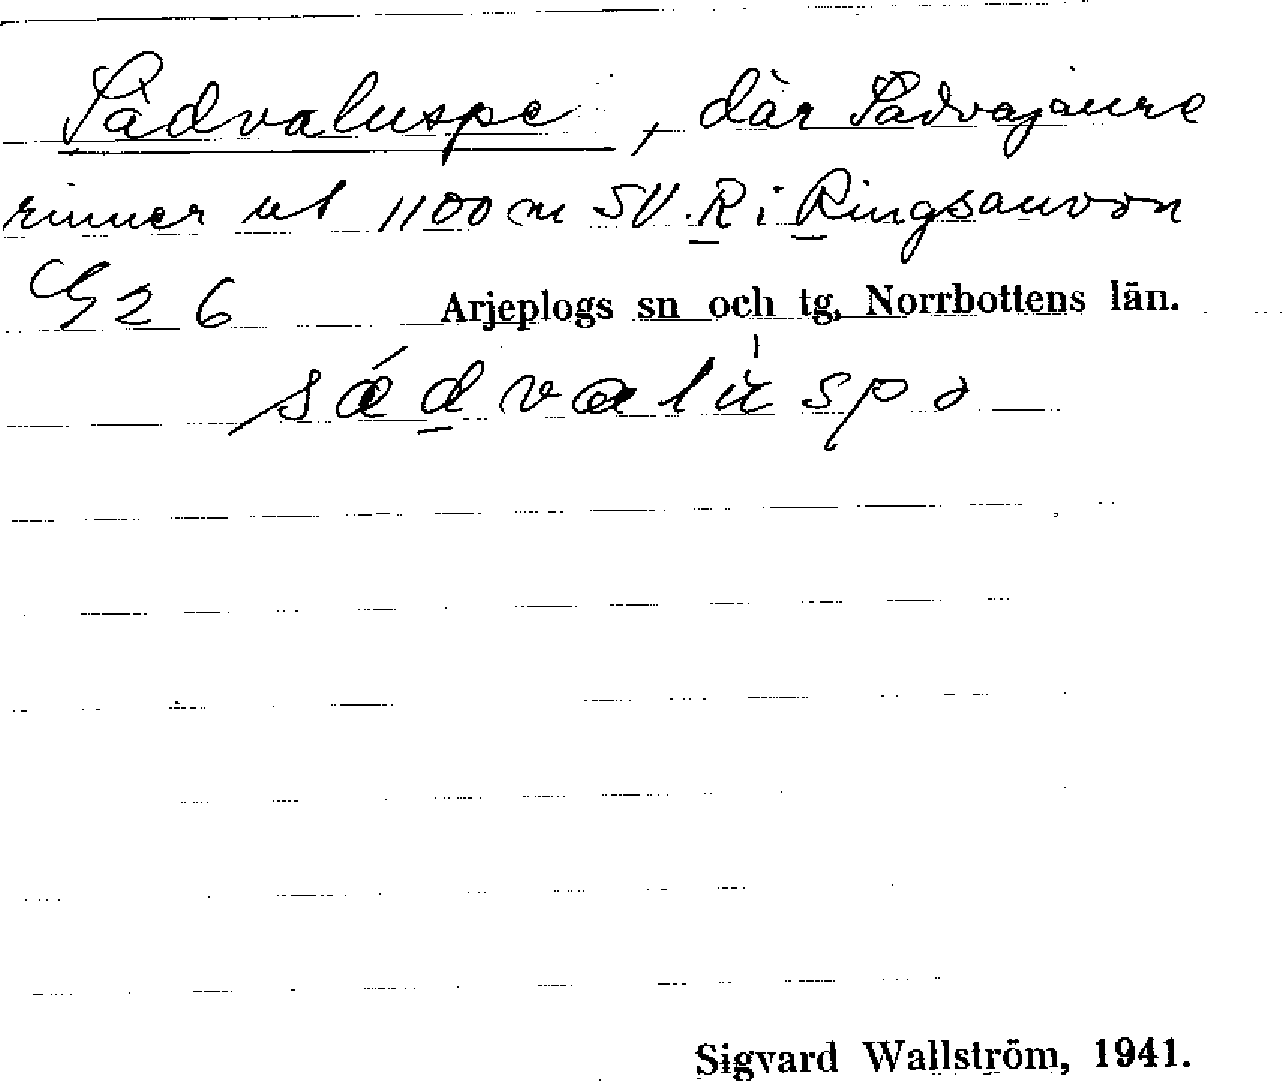 Sädvaluspe, där Sädvajaure
rinner ut 1100 m SV. R i Ringsauvon
G 2 6 Arjeplogs sn och tg, Norrbottens län.
Sigvard Wallström, 1941.